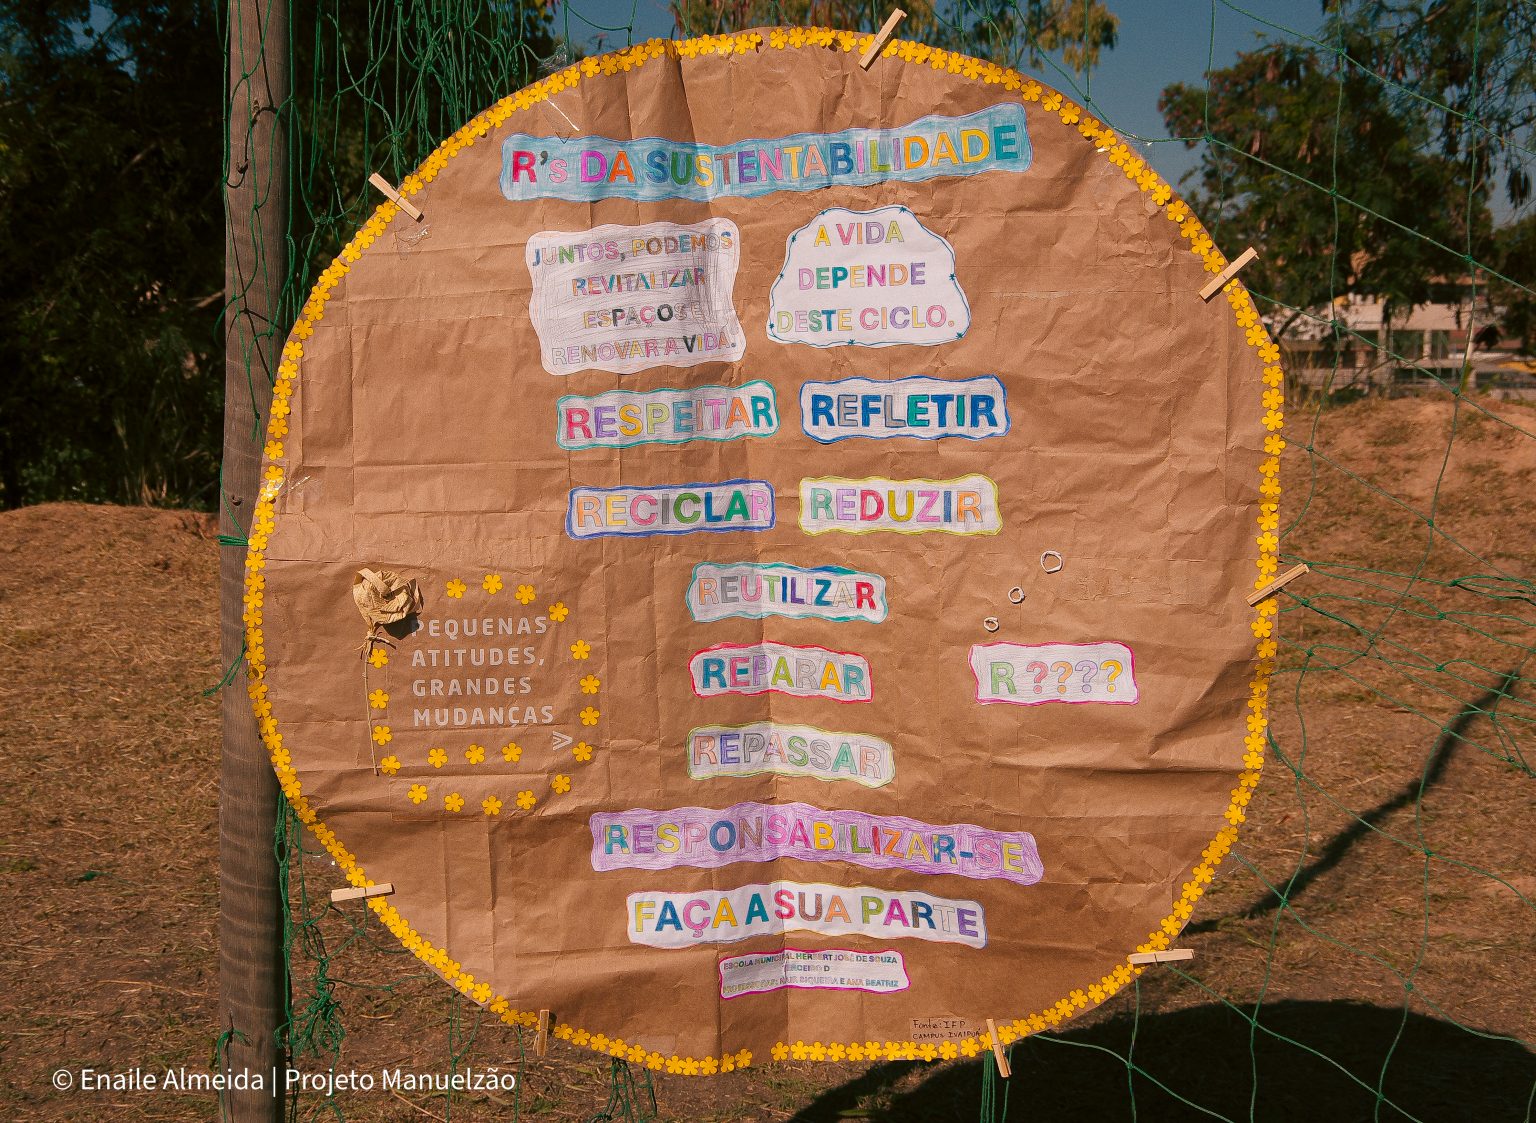 R's DA SUSTENTABILIDADE
JUNTOS, PODEMOS
REVITALIZAR
ESPAÇOS E
RENOVAR A VIDA.
A VIDA
DEPENDE
DESTE CICLO.
RESPEITAR
REFLETIR
RECICLAR
REDUZIR
REUTILIZAR
PEQUENAS
ATITUDES,
GRANDES
MUDANÇAS
REPARAR
R ????
REPASSAR
RESPONSABILIZAR-SE
FAÇA A SUA PARTE
ESCOLA MUNICIPAL HERBERT JOSÉ DE SOUZA
TERCEIRO D
SIQUEIRA E ANA BEATRIZ
Fonte: IFP
CAMPUS IVAIPORÃ
© Enaile Almeida | Projeto Manuelzão